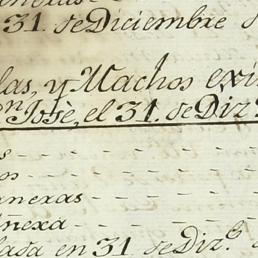 31. de Diciembre
las, y Machos
n Josè, el 31. de Diz.
s
os
anexas
ñexa
lada en 31 de Diz.e